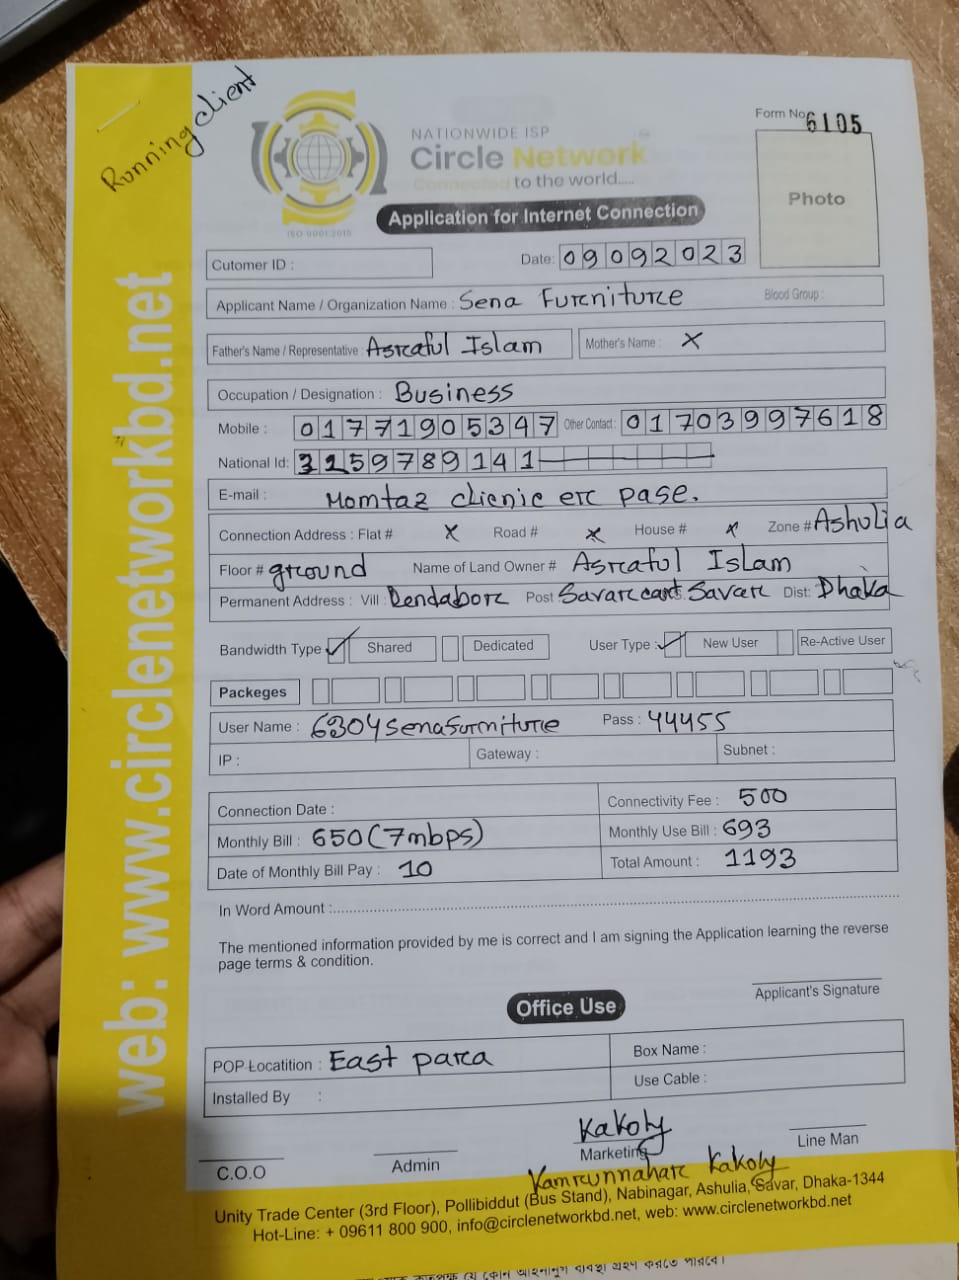 Running client
NATIONWIDE ISP
Circle Network
Connected to the world.....
ISO 9001:2015
Form No 6105
Photo
Application for Internet Connection
Cutomer ID :
Date: 09092023
Applicant Name / Organization Name : Sena Furniture Blood Group :
Father's Name / Representative : Asraful Islam Mother's Name : X
Occupation / Designation : Business
Mobile : 01771905347 Other Contact : 01703997618
National Id: 3259789141
E-mail : Momtaz clienic er pase.
Connection Address : Flat # X Road # X House # X Zone # Ashulia
Floor # ground Name of Land Owner # Asraful Islam
Permanent Address : Vill : Dendabor Post Savar cant Savar Dist: Dhaka
Bandwidth Type ✓ Shared Dedicated User Type : ✓ New User Re-Active User
Packeges
User Name : 6304senafurniture Pass : 44455
IP : Gateway : Subnet :
Connection Date : Connectivity Fee : 500
Monthly Bill : 650 (7mbps) Monthly Use Bill : 693
Date of Monthly Bill Pay : 10 Total Amount : 1193
In Word Amount :
The mentioned information provided by me is correct and I am signing the Application learning the reverse
page terms & condition.
Applicant's Signature
Office Use
POP Locatition : East para Box Name :
Installed By : Use Cable :
Kakoly
C.O.O Admin Marketing Line Man
Kamrunnahar Kakoly
Unity Trade Center (3rd Floor), Pollibiddut (Bus Stand), Nabinagar, Ashulia, Savar, Dhaka-1344
Hot-Line: + 09611 800 900, info@circlenetworkbd.net, web: www.circlenetworkbd.net
web: www.circlenetworkbd.net
যে কোন আইনানুগ ব্যবস্থা গ্রহণ করতে পারবে।